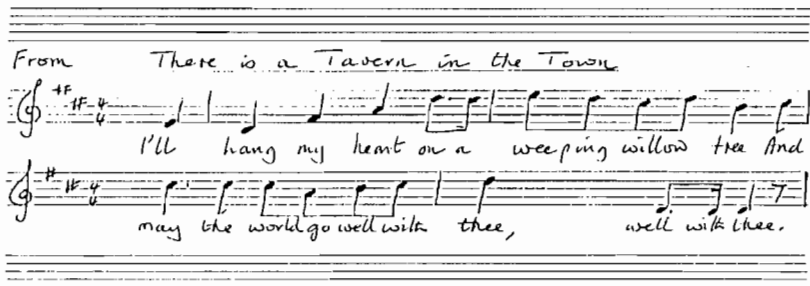 From There is a Tavern in the Town
4 4 I'll hang my heart on a weeping willow tree And
4 4 may the world go well with thee, well with thee.